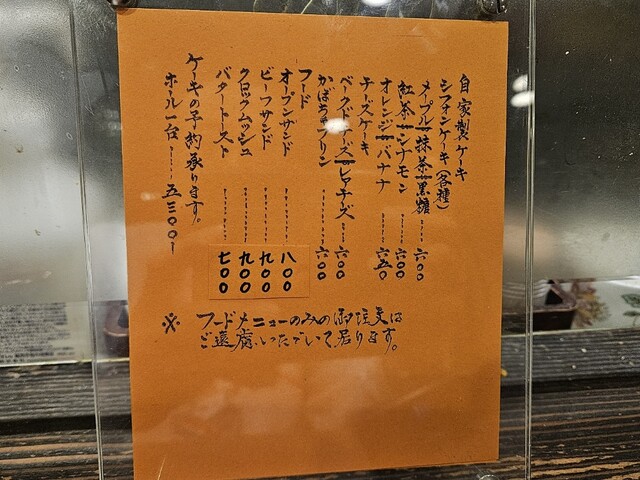 自家製ケーキ
シフォンケーキ(各種)
メープル 抹茶 黒糖 六〇〇
紅茶 シナモン 六〇〇
オレンジ バナナ 六五〇
チーズケーキ
ベークドチーズ レアチーズ 六〇〇
かぼちゃプリン 六〇〇
フード
オープンサンド 八〇〇
ビーフサンド 九〇〇
クロックムッシュ 九〇〇
バタートースト 七〇〇
ケーキの予約承ります。
ホール一台 五三〇〇
※ フードメニューのみの御注文は
ご遠慮いただいて居ります。